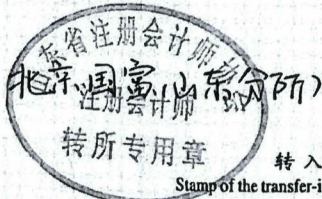 东省注册会计师协
北京国富(山东分所)
注册会计师
转所专用章
转入
Stamp of the transfer-i